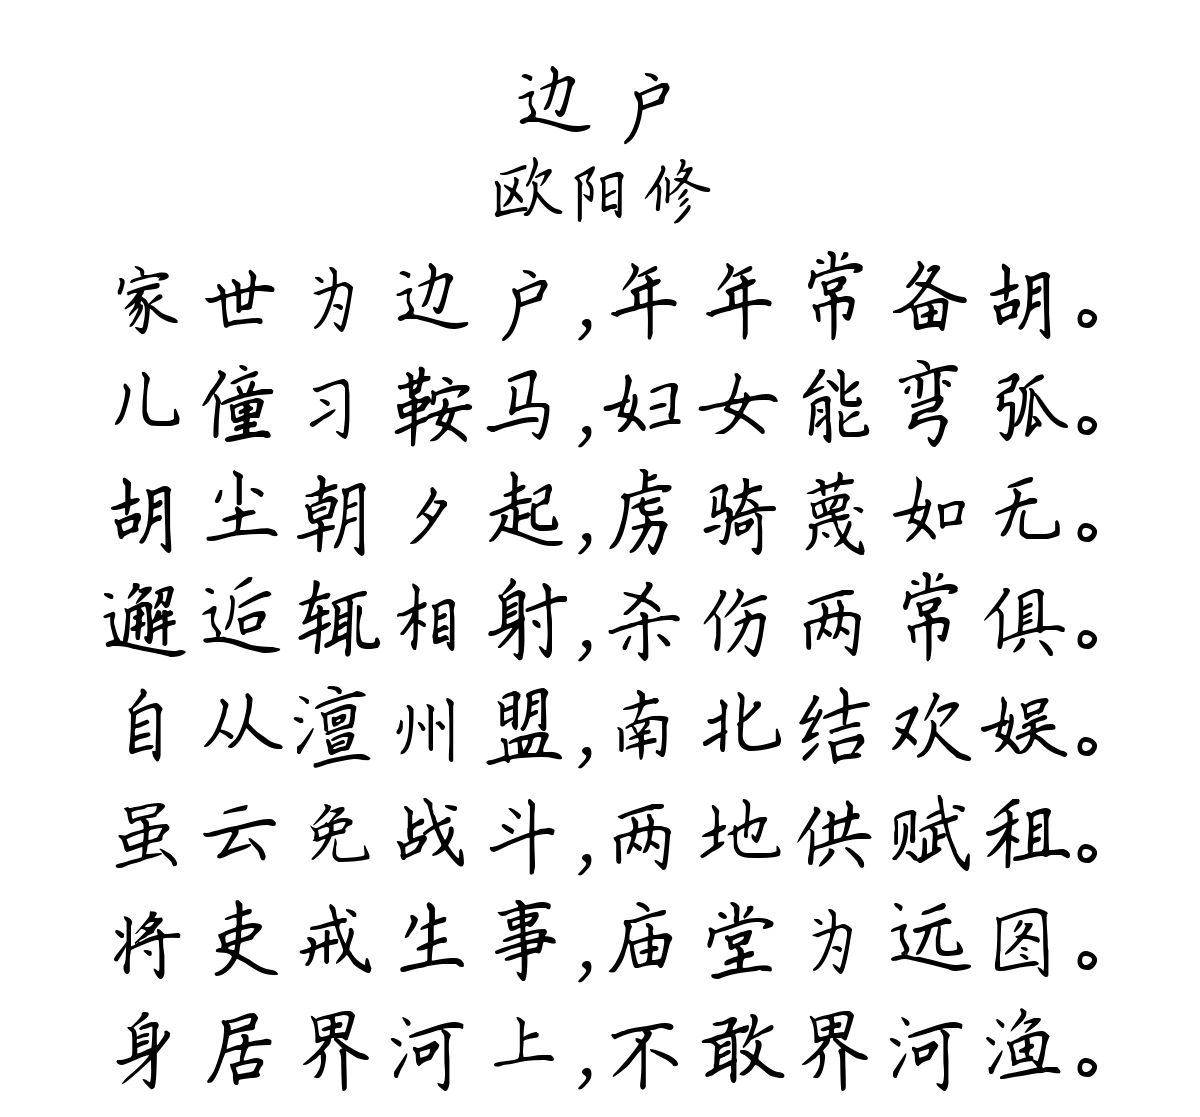 边户
欧阳修
家世为边户,年年常备胡。
儿僮习鞍马,妇女能弯弧。
胡尘朝夕起,虏骑蔑如无。
邂逅辄相射,杀伤两常俱。
自从澶州盟,南北结欢娱。
虽云免战斗,两地供赋租。
将吏戒生事,庙堂为远图。
身居界河上,不敢界河渔。